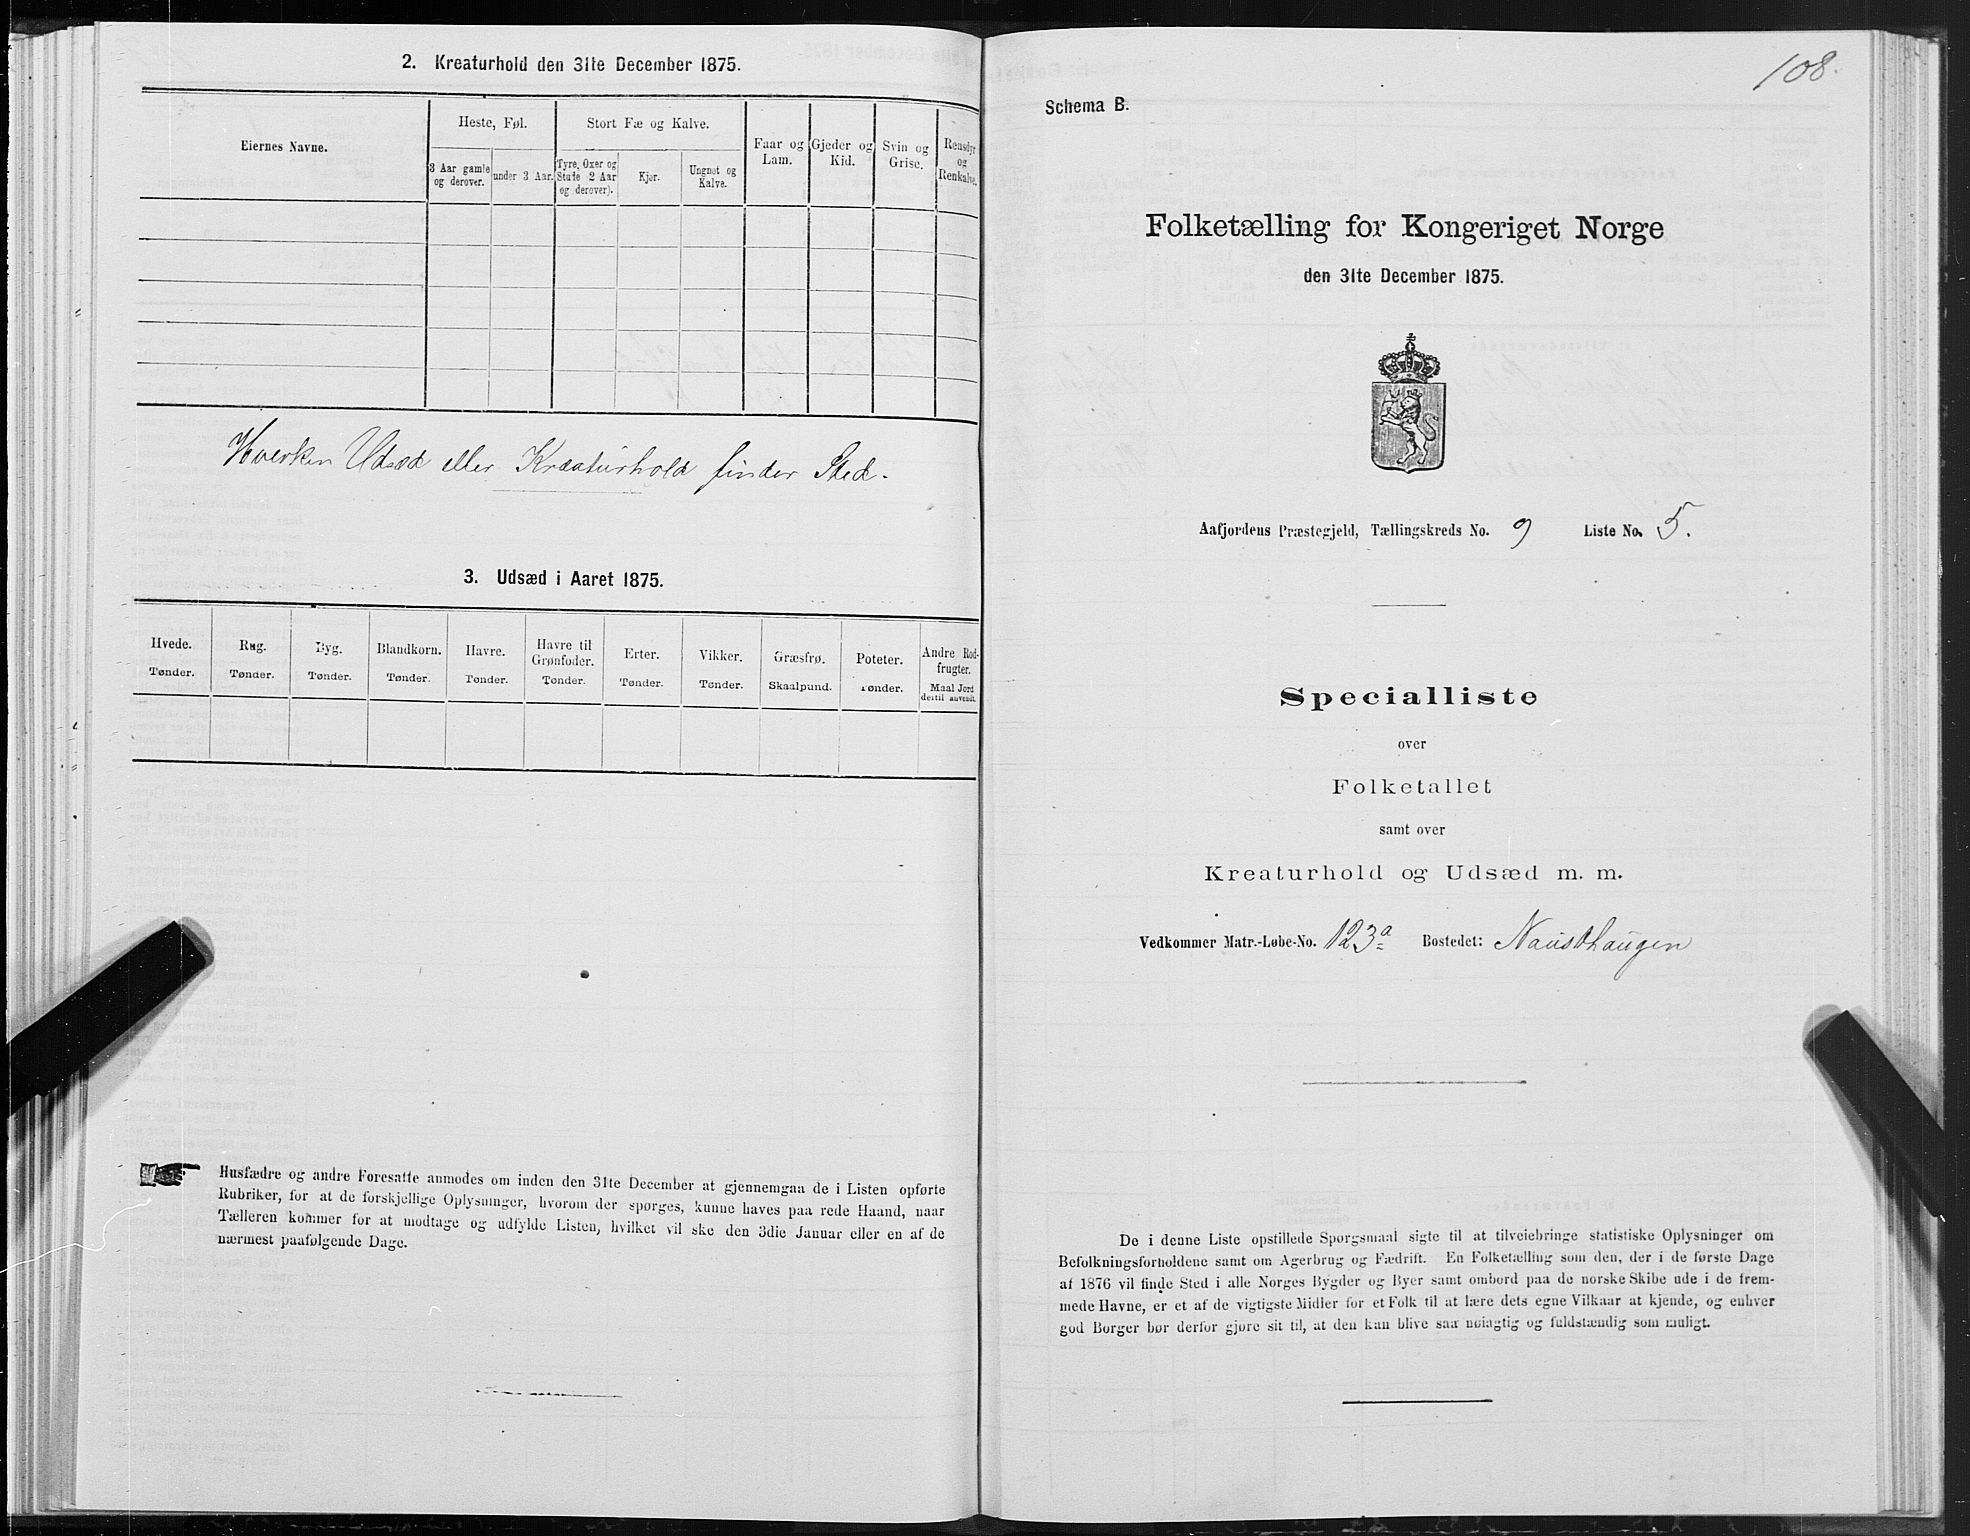 2. Kreaturhold den 31te December 1875.
Eiernes Navne.
Heste, Føl.
3 Aar gamle og derover.
under 3 Aar.
Stort Fæ og Kalve.
Tyre, Oxer og Stude 2 Aar og derover).
Kjør.
Ungnøt og Kalve.
Faar og Lam.
Gjeder og Kid.
Svin og Grise.
Rensdyr og Renkalve.
Hverken Udsæd eller Kreaturhold finder Sted.
3. Udsæd i Aaret 1875.
Hvede. Tønder.
Rug. Tønder.
Byg. Tønder.
Blandkorn. Tønder.
Havre. Tønder.
Havre til Grønfoder. Tønder.
Erter. Tønder.
Vikker. Tønder.
Græsfrø. Skaalpund.
Poteter. Tønder.
Andre Rodfrugter. Maal Jord dertil anvendt.
Husfædre og andre Foresatte anmodes om inden den 31te December at gjennemgaa de i Listen opførte
Rubriker, for at de forskjellige Oplysninger, hvorom der spørges, kunne haves paa rede Haand, naar
Tælleren kommer for at modtage og udfylde Listen, hvilket vil ske den 3die Januar eller en af de
nærmest paafølgende Dage.
108.
Schema B.
Folketælling for Kongeriget Norge
den 31te December 1875.
Aafjordens Præstegjeld, Tællingskreds No. 9 Liste No. 5.
Specialliste
over
Folketallet
samt over
Kreaturhold og Udsæd m. m.
Vedkommer Matr.-Løbe-No. 123a Bostedet: Nausthaugen
De i denne Liste opstillede Spørgsmaal sigte til at tilveiebringe statistiske Oplysninger om
Befolkningsforholdene samt om Agerbrug og Fædrift. En Folketælling som den, der i de første Dage
af 1876 vil finde Sted i alle Norges Bygder og Byer samt ombord paa de norske Skibe ude i de frem-
mede Havne, er et af de vigtigste Midler for et Folk til at lære dets egne Vilkaar at kjende, og enhver
god Borger bør derfor gjøre sit til, at den kan blive saa nøiagtig og fuldstændig som muligt.